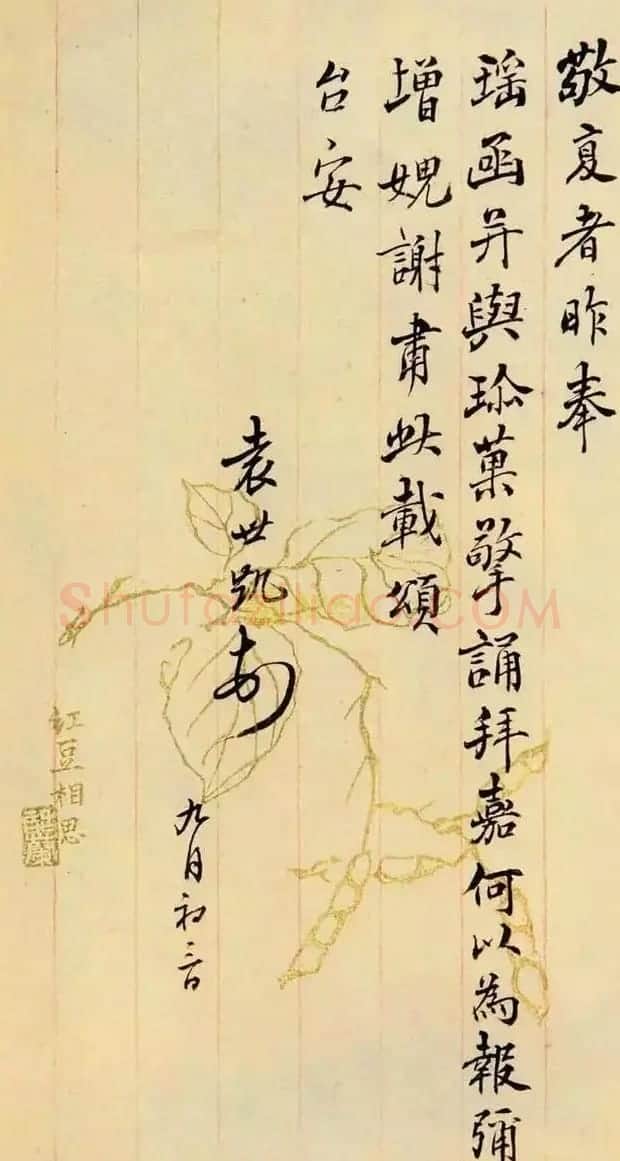 敬复者昨奉
瑶函并與珎菓擎誦拜嘉何以為報彌
增媿謝肅此載頌
台安
袁世凱
九月初三日
紅豆相思
Shufaziliao.COM